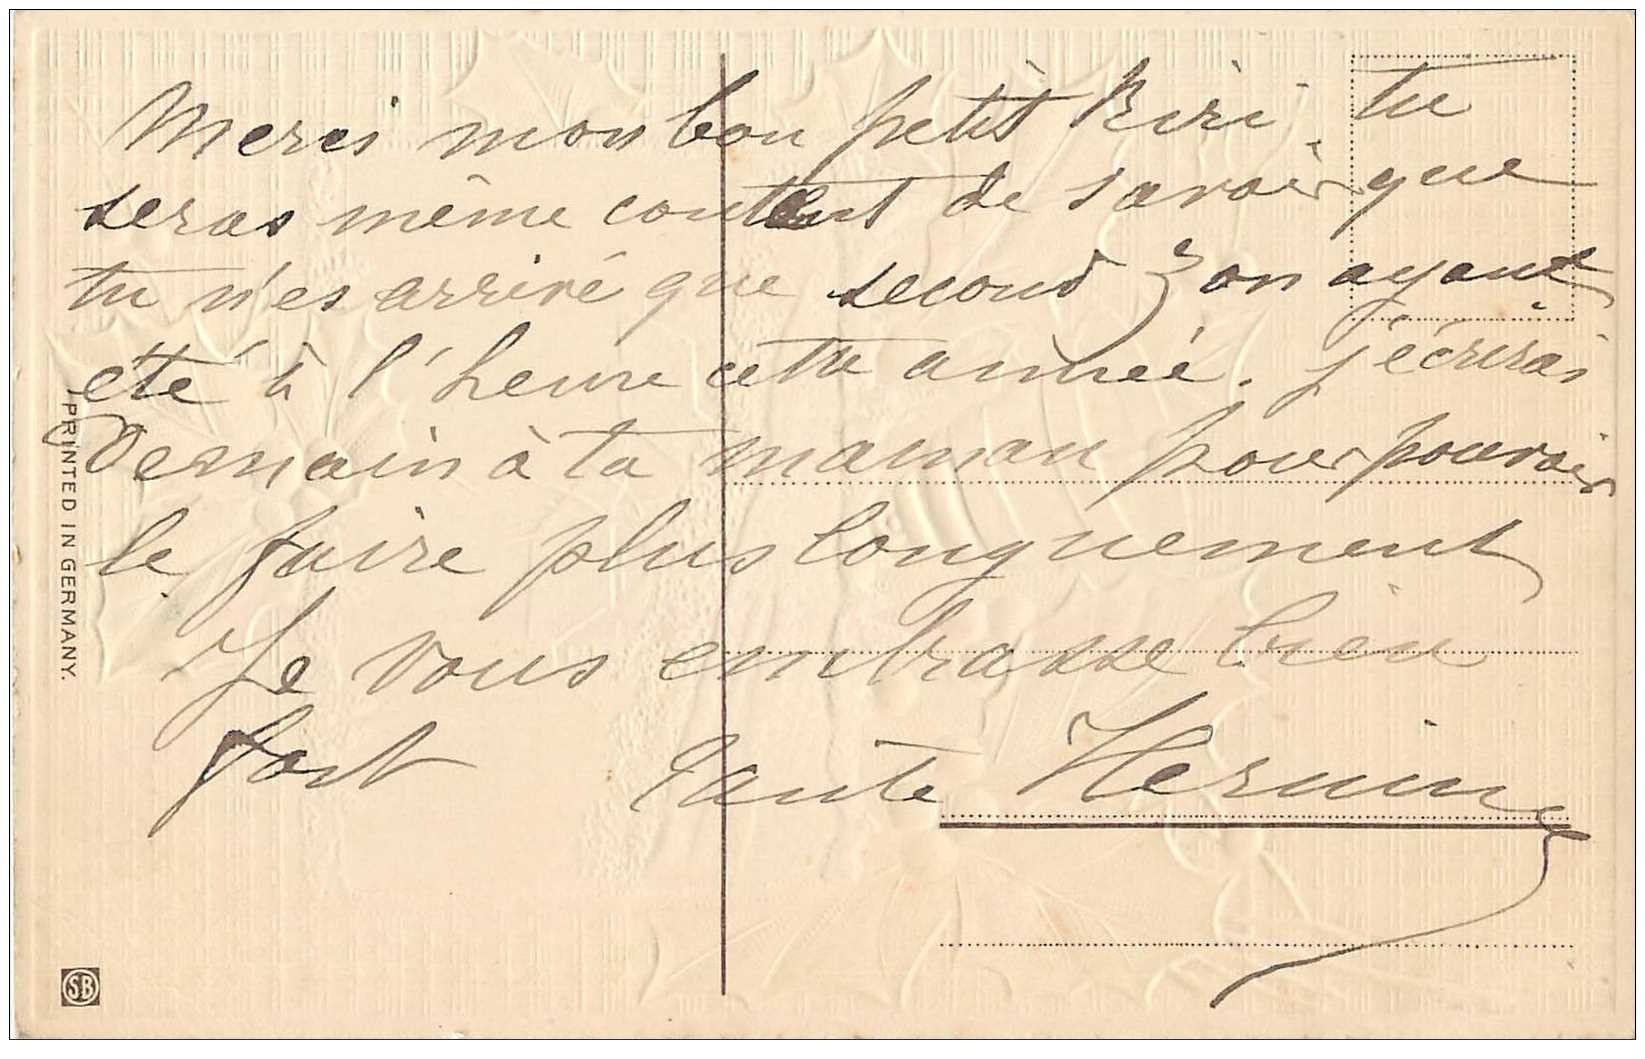 Merci mon bon petit Riri. tu
seras même content de savoir que
tu n'es arrivé que second ayant
été à l'heure cette année. j'écrirai
Demain à ta maman pour pouvoir
le faire plus longuement
Je vous embrasse bien
fort Tante Hermine
PRINTED IN GERMANY.
SB